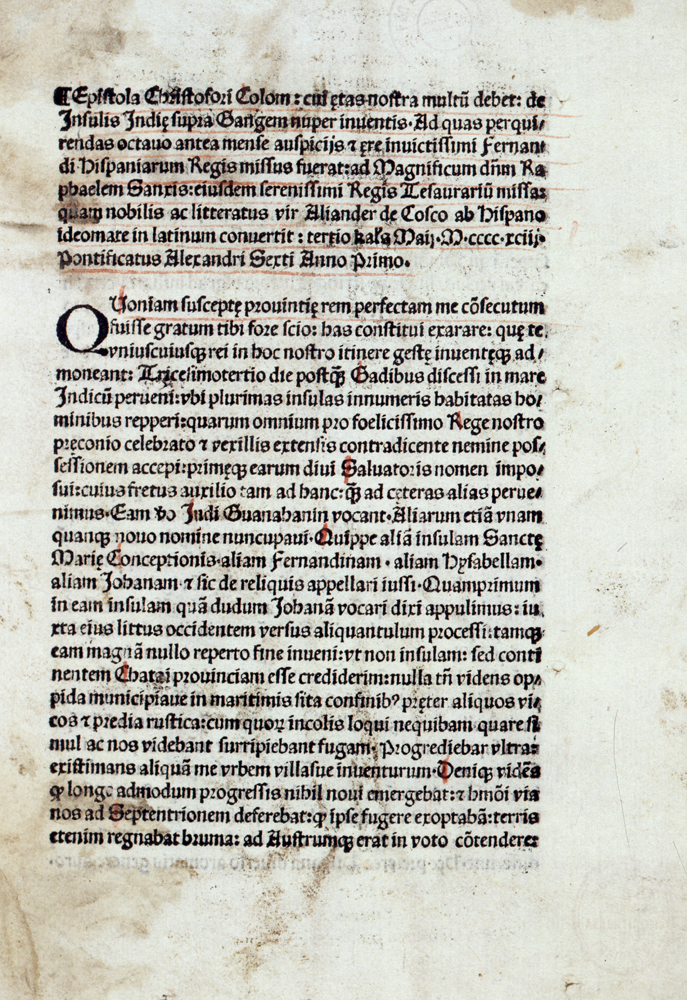 ¶Epistola Christofori Colom: cui ętas nostra multū debet: de
Insulis Indię supra Gangem nuper inuentis·Ad quas perqui/
rendas octauo antea mense auspicijs ⁊ ęre inuictissimi Fernan/
di Hispaniarum Regis missus fuerat: ad Magnificum dñm Ra
phaelem Sanxis: eiusdem serenissimi Regis Tesaurariū missa:
quam nobilis ac litteratus vir Aliander de Cosco ab Hispano
ideomate in latinum conuertit: tertio kaľs Maij·M·cccc·xciij·
Pontificatus Alexandri Sexti Anno Primo.
QUoniam susceptę prouintię rem perfectam me cōsecutum
fuisse gratum tibi fore scio: has constitui exarare: quę te
vniuscuiusqꝫ rei in hoc nostro itinere gestę inuentęqꝫ ad/
moneant: Tricesimotertio die postq̃ꝫ Gadibus discessi in mare
Indicū perueni: vbi plurimas insulas innumeris habitatas ho/
minibus repperi: quarum omnium pro foelicissimo Rege nostro
pręconio celebrato ⁊ vexillis extensis contradicente nemine pos/
sessionem accepi: primęqꝫ earum diui Saluatoris nomen impo/
sui: cuius fretus auxilio tam ad hanc: q̃ꝫ ad cęteras alias perue/
nimus·Eam ṽo Indi Guanahanin vocant·Aliarum etiā vnam
quanqꝫ nouo nomine nuncupaui·Quippe aliā insulam Sanctę
Marię Conceptionis·aliam Fernandinam·aliam Hysabellam·
aliam Johanam·⁊ sic de reliquis appellari iussi·Quamprimum
in eam insulam quā dudum Johanā vocari dixi appulimus: iu
xta eius littus occidentem versus aliquantulum processi: tamqꝫ
eam magnā nullo reperto fine inueni: vt non insulam: sed conti
nentem Chatai prouinciam esse crediderim: nulla tñ videns op/
pida municipiaue in maritimis sita confinibꝰ pręter aliquos vi/
cos ⁊ predia rustica: cum quoꝝ incolis loqui nequibam quare si
mul ac nos videbant surripiebant fugam·Progrediebar vltra:
existimans aliquā me vrbem villasue inuenturum·Deniqꝫ vidēs
ꝙ longe admodum progressis nihil noui emergebat: ⁊ hmōi via
nos ad Septentrionem deferebat: ꝙ ipse fugere exoptabā: terris
etenim regnabat bruma: ad Austrumqꝫ erat in voto cōtendere: